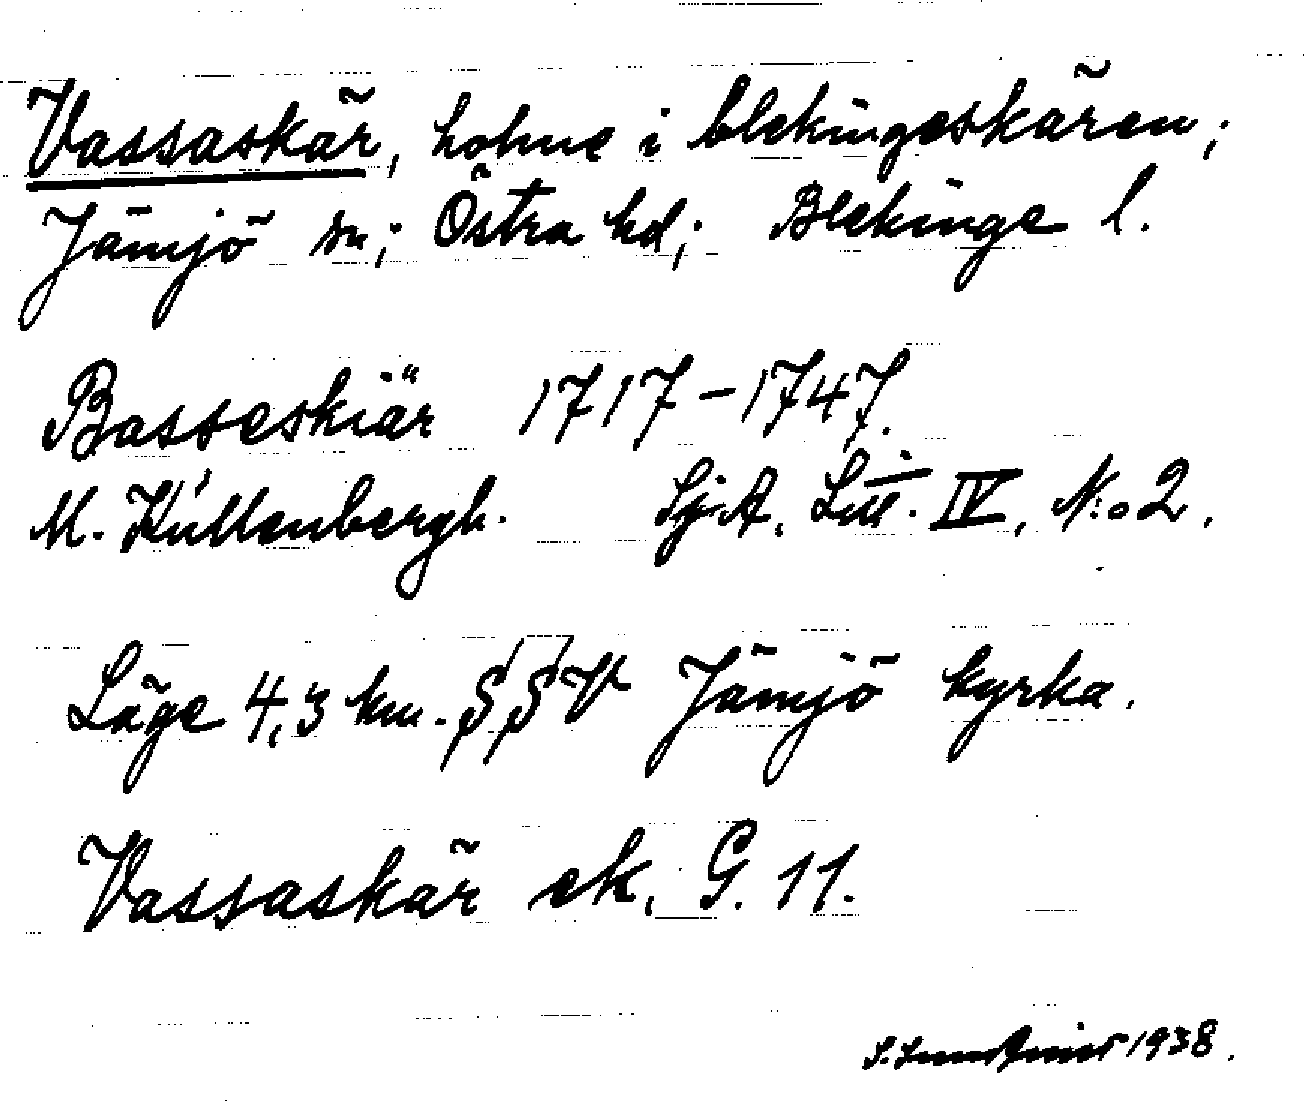 Vassaskär, holme i blekingeskären;
Jämjö sn; Östra hd; Blekinge l.
Basseskiär 1717-1747.
M. Kullenbergh. Sj.A. Litt. IV, N:o 2.
Läge 4,3 km. SSV Jämjö kyrka.
Vassaskär ek. G. 11.
1938.